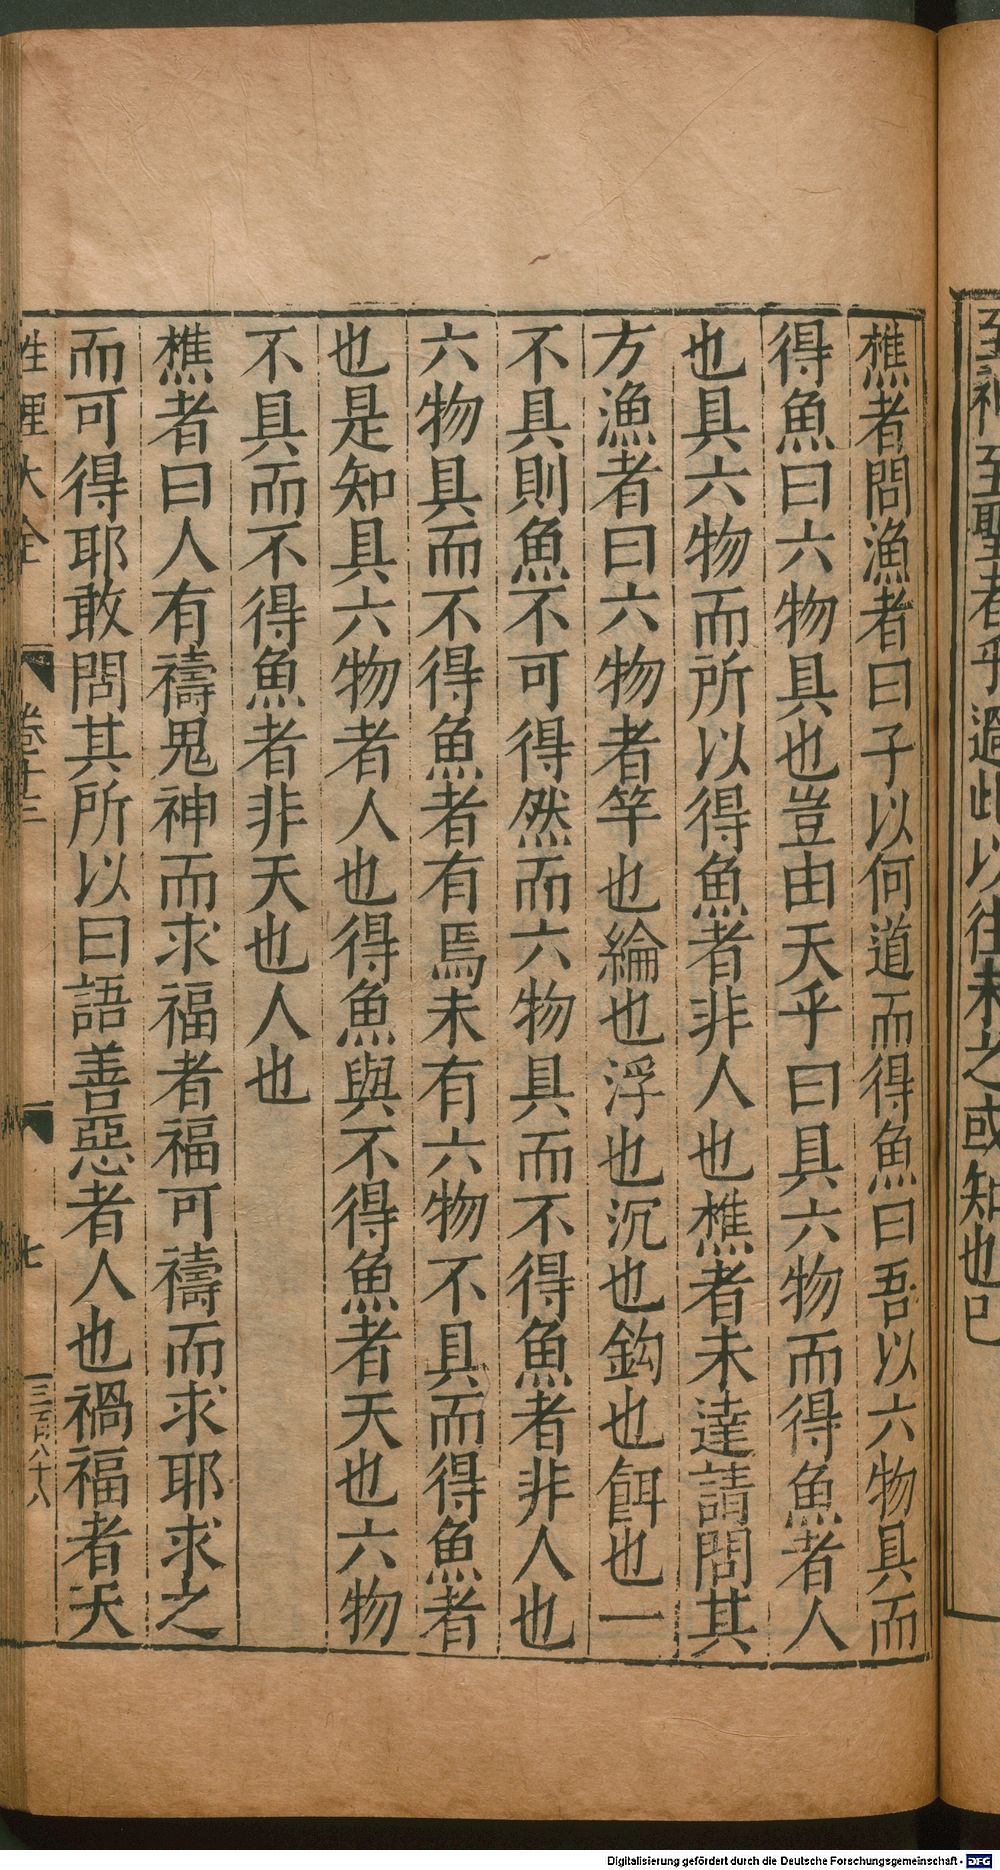 至神至聖者乎過此以往未之或知也已
樵者問漁者曰子以何道而得魚曰吾以六物具而
得魚曰六物具也豈由天乎曰具六物而得魚者人
也具六物而所以得魚者非人也樵者未達請問其
方漁者曰六物者竿也綸也浮也沉也鈎也餌也一
不具則魚不可得然而六物具而不得魚者非人也
六物具而不得魚者有焉未有六物不具而得魚者
也是知具六物者人也得魚與不得魚者天也六物
不具而不得魚者非天也人也
樵者曰人有禱鬼神而求福者福可禱而求耶求之
而可得耶敢問其所以曰語善惡者人也禍福者天
性理大全 卷十三 七 三百八十八
Digitalisierung gefördert durch die Deutsche Forschungsgemeinschaft - DFG